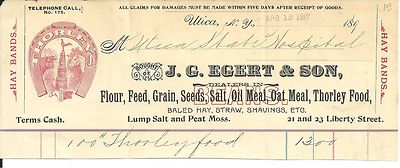 TELEPHONE CALL
No. 175.
ALL CLAIMS FOR DAMAGES MUST BE MADE WITHIN FIVE DAYS AFTER RECEIPT OF GOODS.
Utica, N. Y. APR 12 1897 189
M Utica State Hospital
THORLEY'S
HAY BANDS.
BOUGHT OF
J. G. EGERT & SON,
DEALERS IN
BEANS,
Flour, Feed, Grain, Seeds, Salt, Oil Meal, Oat Meal, Thorley Food,
BALED HAY, STRAW, SHAVINGS, ETC.
HAY BANDS.
Terms Cash.
Lump Salt and Peat Moss.
21 and 23 Liberty Street.
100# Thorley food 13 00